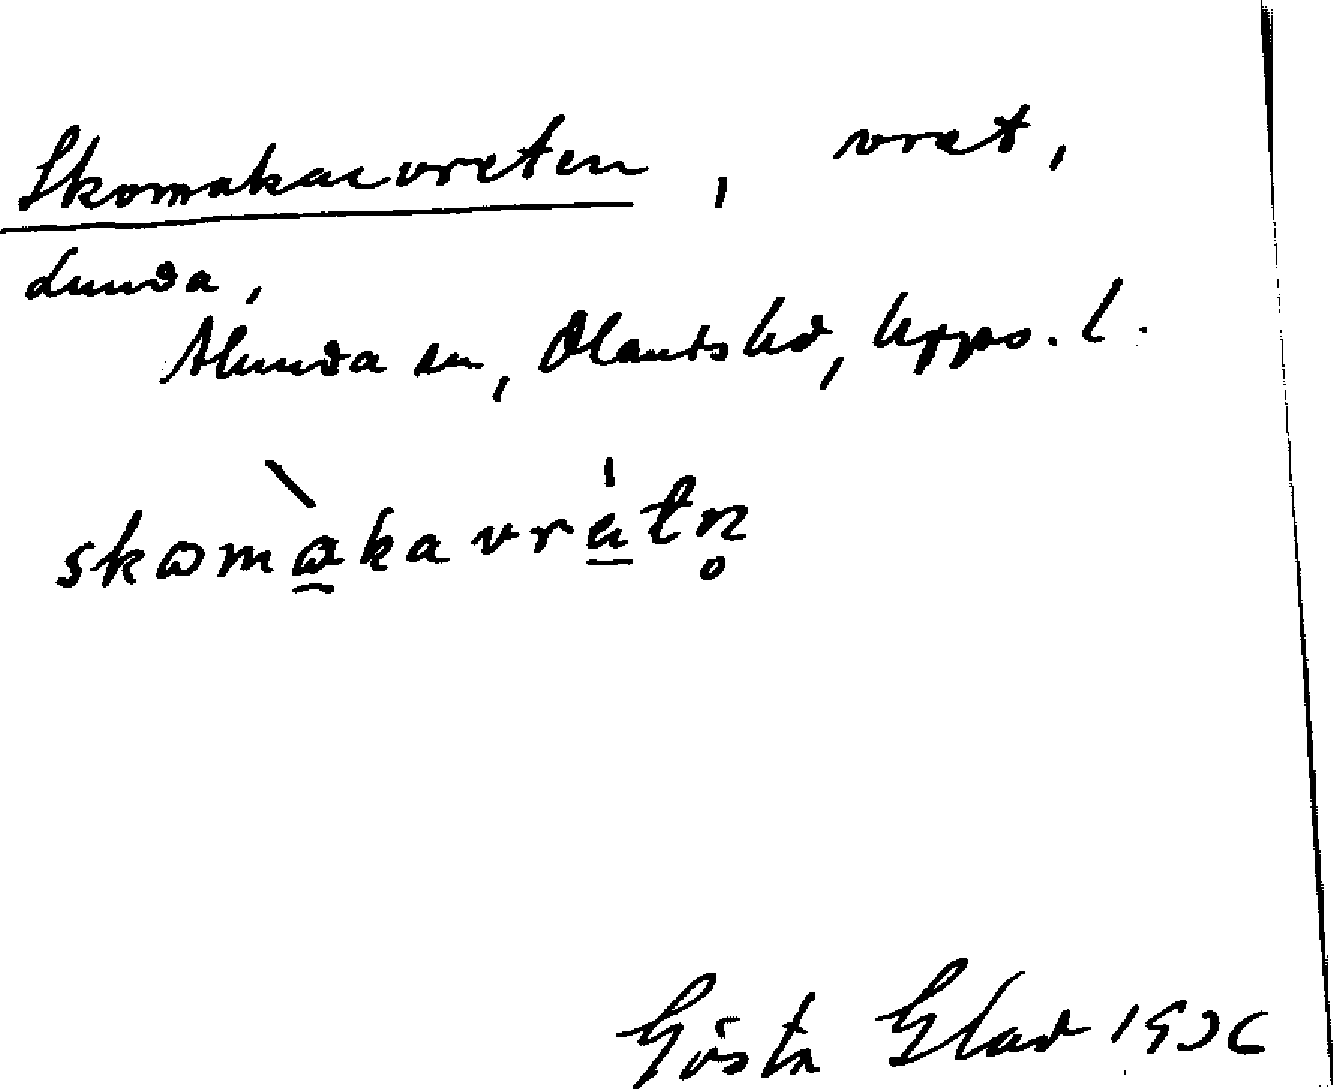 Skomakarvreten, vret,
Lunda,
Alunda sn, Olands hd, Upps. l.
skomakavrätn
Gösta Elad 1936